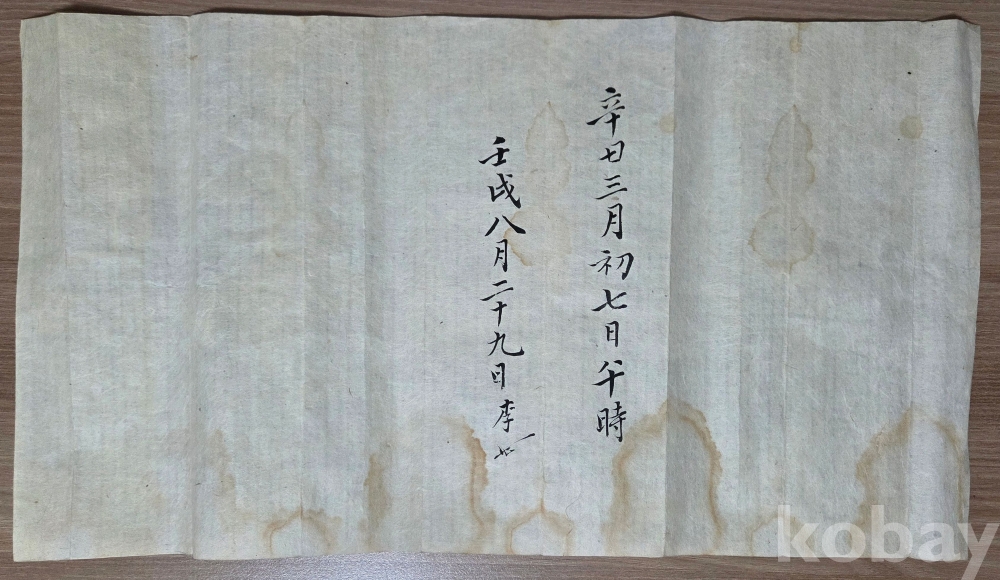 辛丑三月初七日午時
壬戌八月二十九日李
kobay